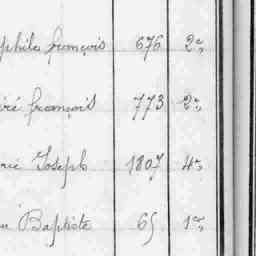 phile françois 676 2e
iré françois 773 2e
rie Joseph 1807 4e
n Baptiste 65 1re